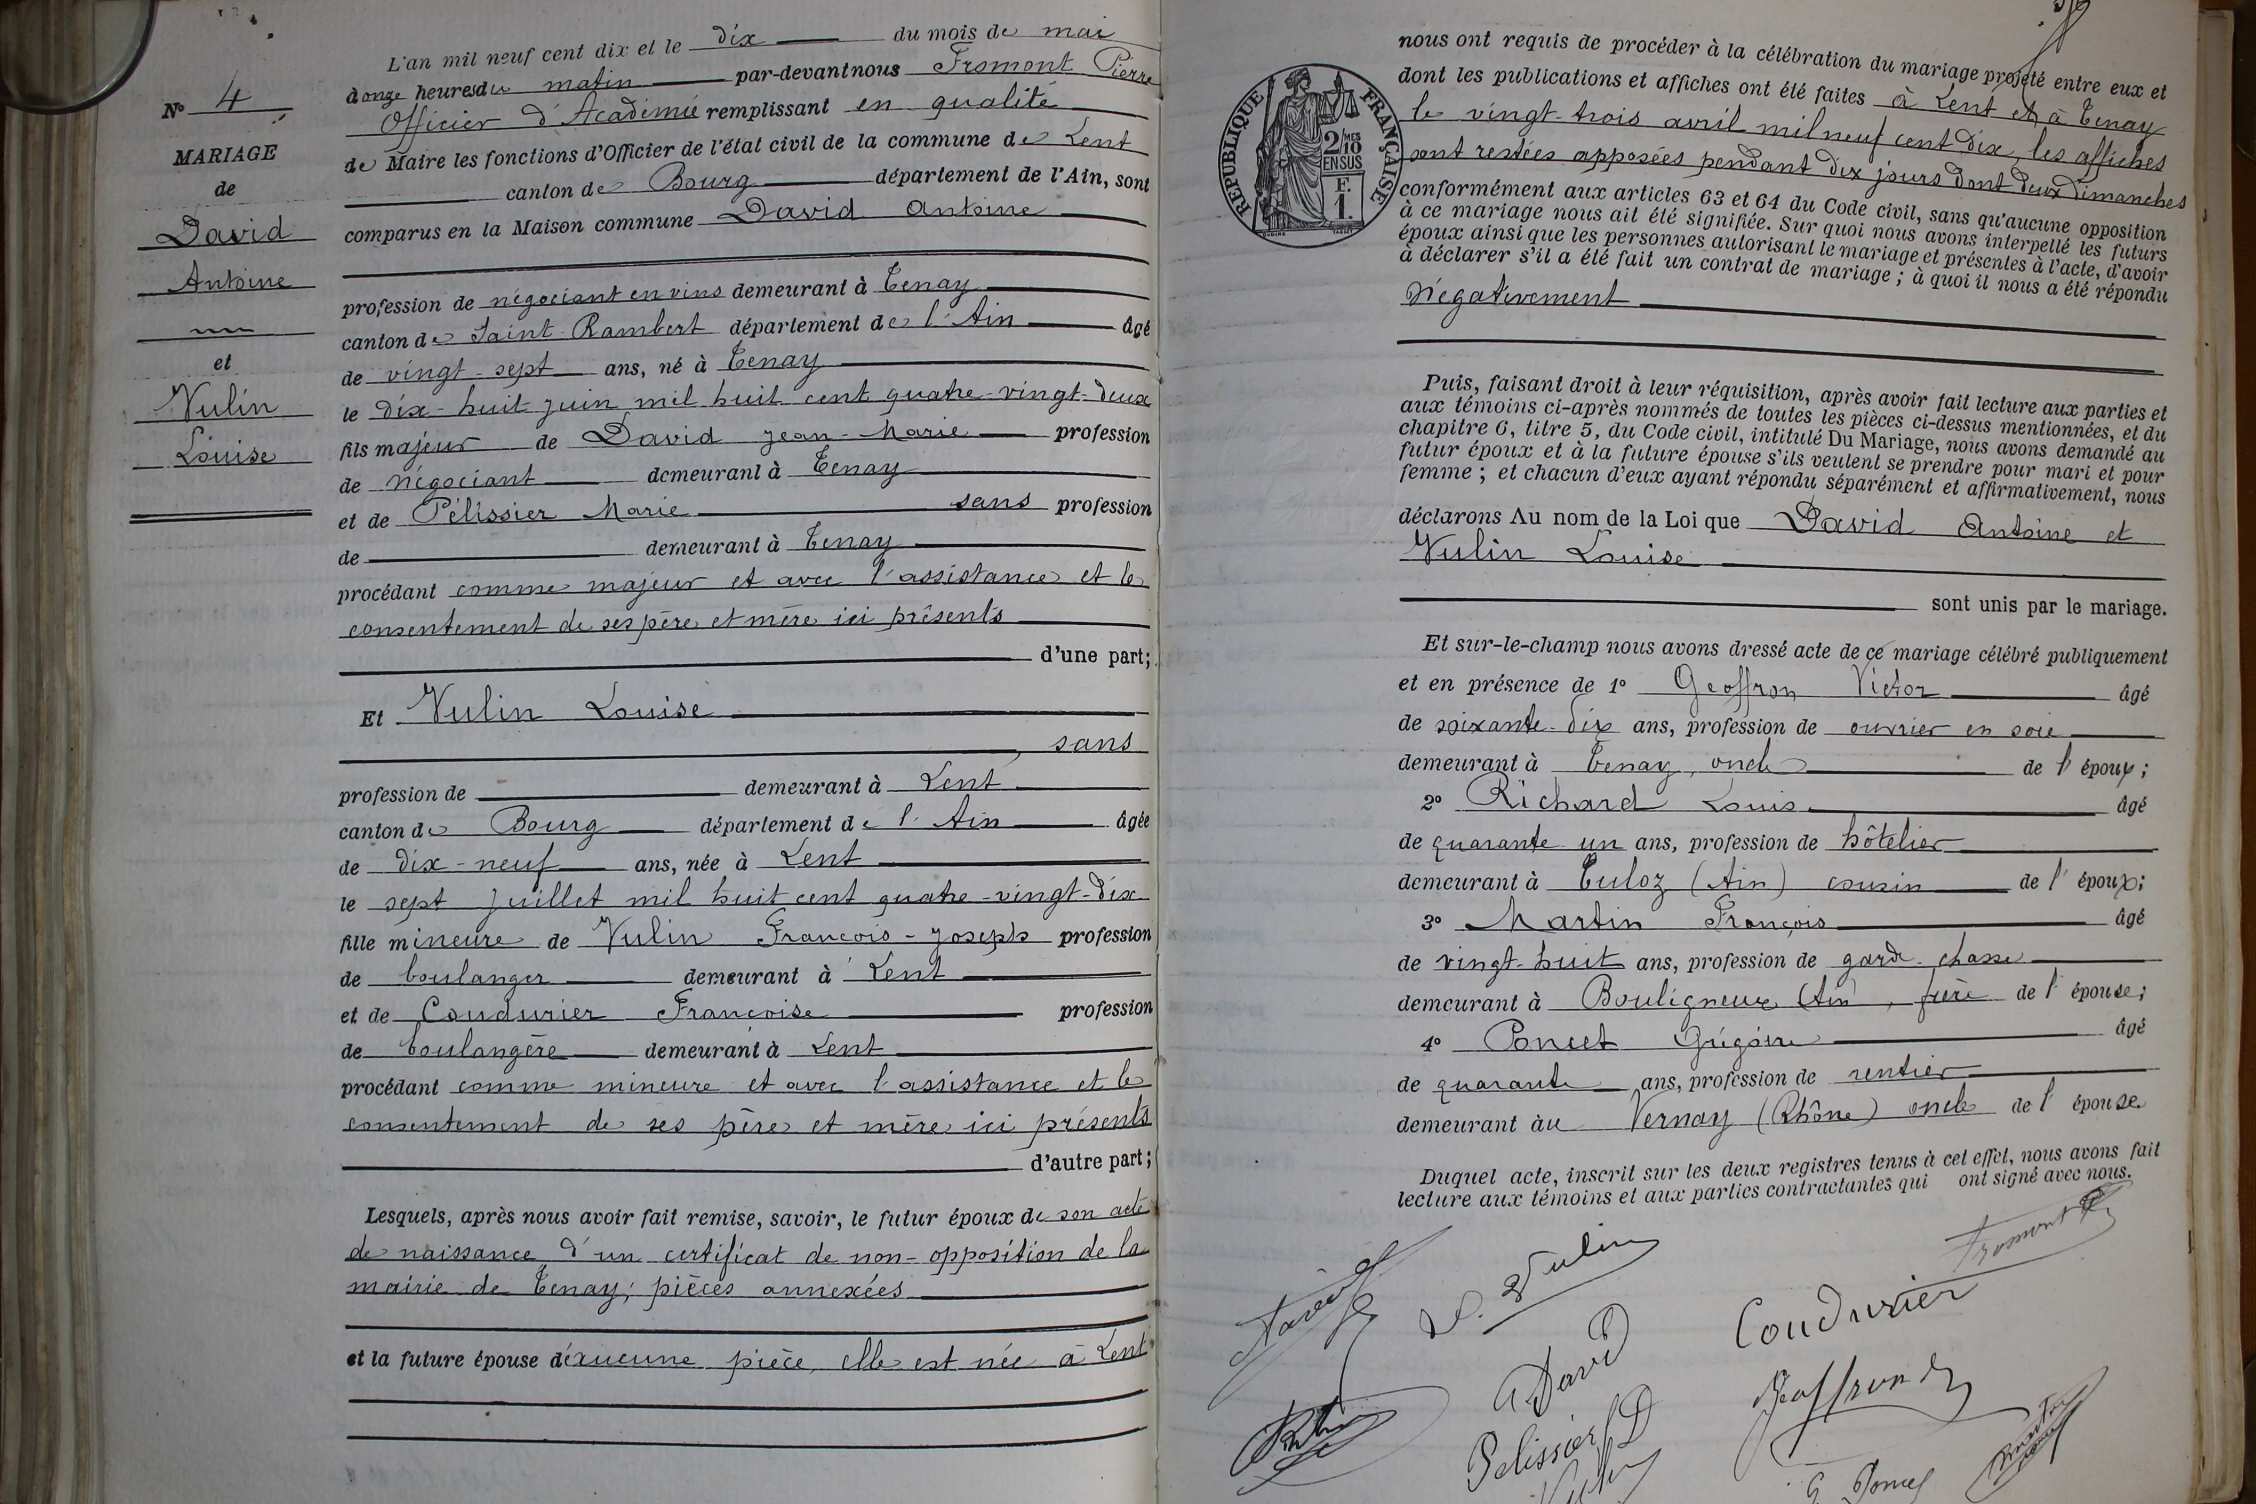 Nº 4
MARIAGE
de
David
Antoine
et
Vulin
Louise
L'an mil neuf cent dix et le dix du mois de mai
à onze heures du matin par-devant nous Fromont Pierre
Officier d'Académie remplissant en qualité
de Maire les fonctions d'Officier de l'état civil de la commune de Lent
canton de Bourg département de l'Ain, sont
comparus en la Maison commune David Antoine
profession de négociant en vins demeurant à Tenay
canton de Saint-Rambert département de l'Ain âgé
de vingt-sept ans, né à Tenay
le dix-huit juin mil huit cent quatre-vingt-deux
fils majeur de David Jean-Marie profession
de négociant demeurant à Tenay
et de Pélissier Marie sans profession
de demeurant à Tenay
procédant comme majeur et avec l'assistance et le
consentement de ses père et mère ici présents
d'une part;
Et Vulin Louise
sans
profession de demeurant à Lent
canton de Bourg département de l'Ain âgée
de dix-neuf ans, née à Lent
le sept juillet mil huit cent quatre-vingt-dix
fille mineure de Vulin François-Joseph profession
de boulanger demeurant à Lent
et de Coudurier Françoise profession
de boulangère demeurant à Lent
procédant comme mineure et avec l'assistance et le
consentement de ses père et mère ici présents
d'autre part;
Lesquels, après nous avoir fait remise, savoir, le futur époux de son acte
de naissance d'un certificat de non-opposition de la
mairie de Tenay; pièces annexées
et la future épouse d'aucune pièce, elle est née à Lent
RÉPUBLIQUE FRANÇAISE
2/10 MES
EN SUS
F.
1.
nous ont requis de procéder à la célébration du mariage projeté entre eux et
dont les publications et affiches ont été faites à Lent et à Tenay
le vingt-trois avril mil neuf cent dix, les affiches
sont restées apposées pendant dix jours dont deux dimanches
conformément aux articles 63 et 64 du Code civil, sans qu'aucune opposition
à ce mariage nous ait été signifiée. Sur quoi nous avons interpellé les futurs
époux ainsi que les personnes autorisant le mariage et présentes à l'acte, d'avoir
à déclarer s'il a été fait un contrat de mariage; à quoi il nous a été répondu
Négativement
Puis, faisant droit à leur réquisition, après avoir fait lecture aux parties et
aux témoins ci-après nommés de toutes les pièces ci-dessus mentionnées, et du
chapitre 6, titre 5, du Code civil, intitulé Du Mariage, nous avons demandé au
futur époux et à la future épouse s'ils veulent se prendre pour mari et pour
femme; et chacun d'eux ayant répondu séparément et affirmativement, nous
déclarons Au nom de la Loi que David Antoine et
Vulin Louise
sont unis par le mariage.
Et sur-le-champ nous avons dressé acte de ce mariage célébré publiquement
et en présence de 1º Geoffron Victor âgé
de soixante-dix ans, profession de ouvrier en soie
demeurant à Tenay, oncle de l'époux;
2º Richard Louis âgé
de quarante un ans, profession de hôtelier
demeurant à Culoz (Ain) cousin de l'époux;
3º Martin François âgé
de vingt-huit ans, profession de garde-chasse
demeurant à Bouligneux (Ain), frère de l'épouse;
4º Poncet Grégoire âgé
de quarante ans, profession de rentier
demeurant àu Vernay (Rhône) oncle de l'épouse
Duquel acte, inscrit sur les deux registres tenus à cet effet, nous avons fait
lecture aux témoins et aux parties contractantes qui ont signé avec nous.
Fromont
L. Vulin
Coudurier
A David
Geoffron
Pelissier D
G Poncet